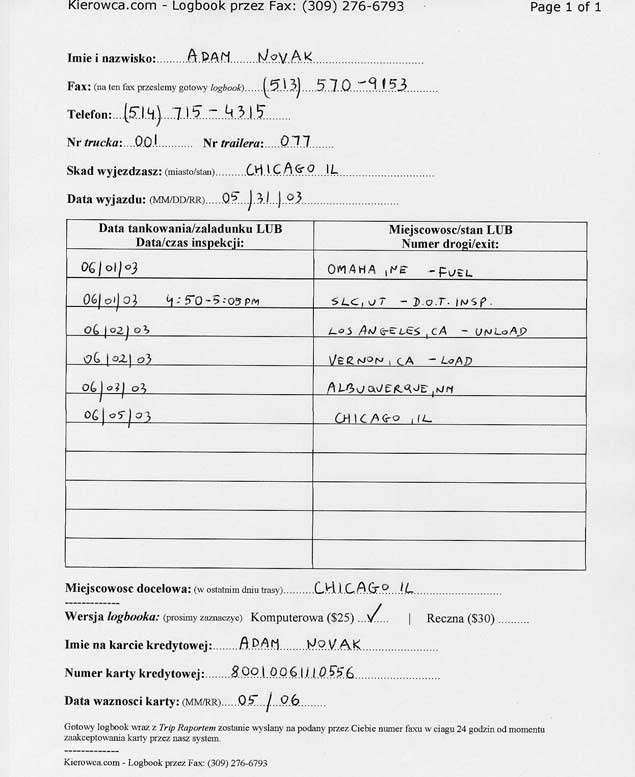 Kierowca.com - Logbook przez Fax: (309) 276-6793 Page 1 of 1
Imie i nazwisko: ADAM NOVAK
Fax: (na ten fax przeslemy gotowy logbook) (513) 570-9153
Telefon: (514) 715-4315
Nr trucka: 001 Nr trailera: 077
Skad wyjezdzasz: (miasto/stan) CHICAGO IL
Data wyjazdu: (MM/DD/RR) 05/31/03
Data tankowania/zaladunku LUB Miejscowosc/stan LUB
Data/czas inspekcji: Numer drogi/exit:
06/01/03 OMAHA, NE - FUEL
06/01/03 4:50-5:05PM SLC, UT - D.O.T. INSP.
06/02/03 LOS ANGELES, CA - UNLOAD
06/02/03 VERNON, CA - LOAD
06/03/03 ALBUQUERQUE, NM
06/05/03 CHICAGO, IL
Miejscowosc docelowa: (w ostatnim dniu trasy) CHICAGO IL
Wersja logbooka: (prosimy zaznaczyc) Komputerowa ($25) ✓ | Reczna ($30)
Imie na karcie kredytowej: ADAM NOVAK
Numer karty kredytowej: 80010061110556
Data waznosci karty: (MM/RR) 05/06
Gotowy logbook wraz z Trip Raportem zostanie wyslany na podany przez Ciebie numer faxu w ciagu 24 godzin od momentu
zaakceptowania karty przez nasz system.
Kierowca.com - Logbook przez Fax: (309) 276-6793